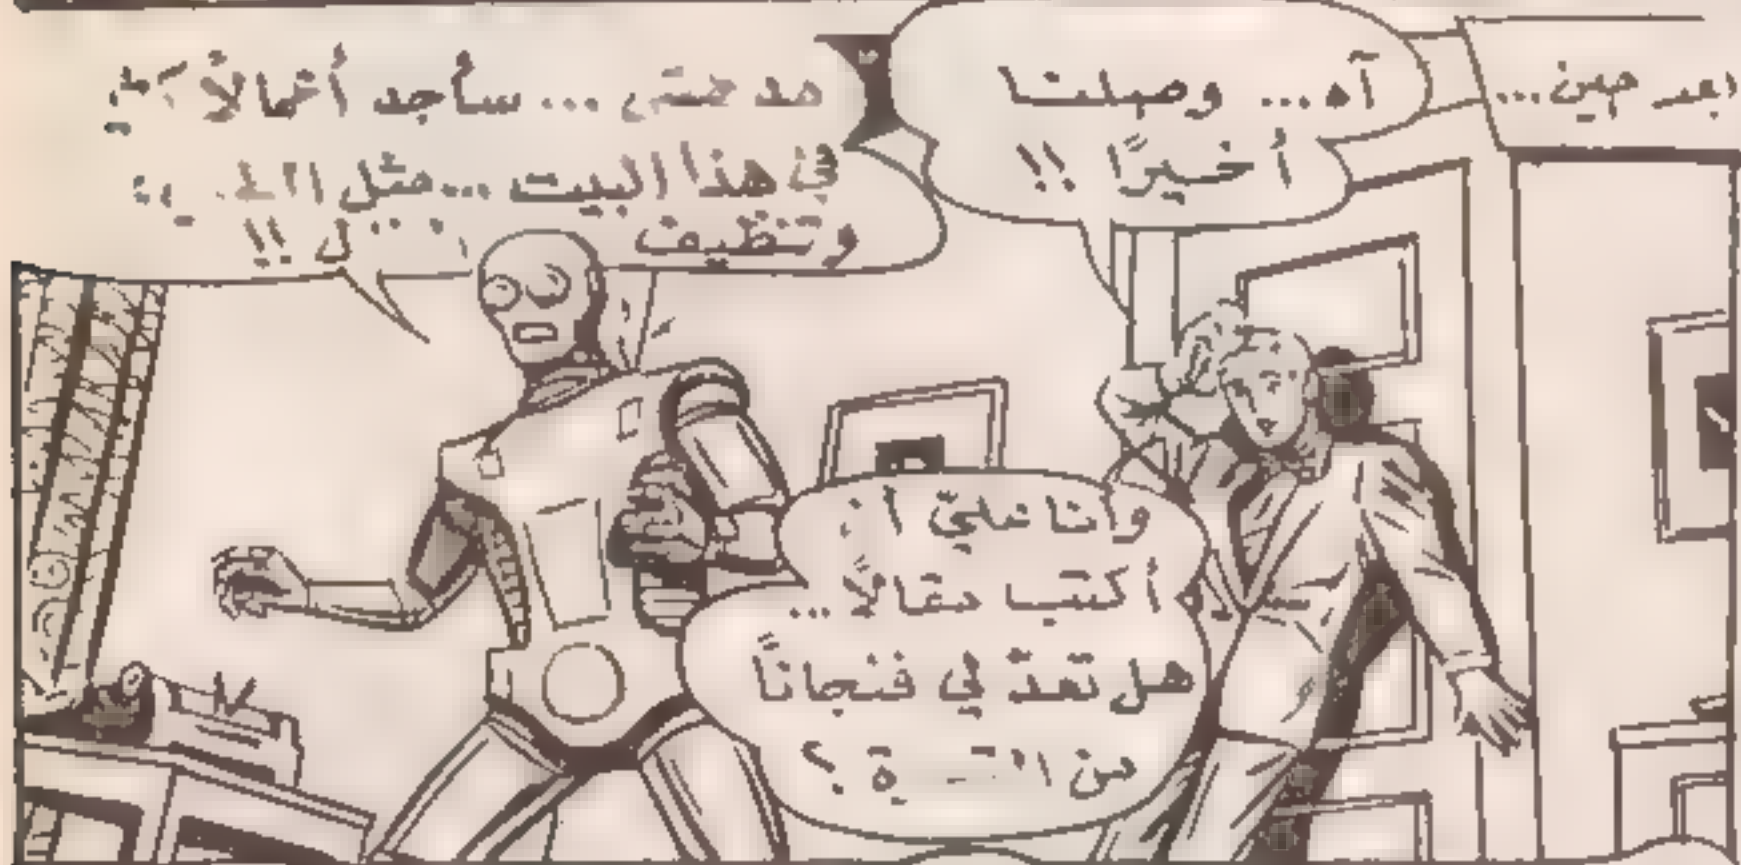 بعد حين...
آه... وصلنا
أخيرًا !!
مدهش ... سأجد أعمالاً
في هذا البيت ... مثل
وتنظيف !!
وأنا عليّ أن
أكتب مقالاً ...
هل تعدّ لي فنجاناً
من ؟